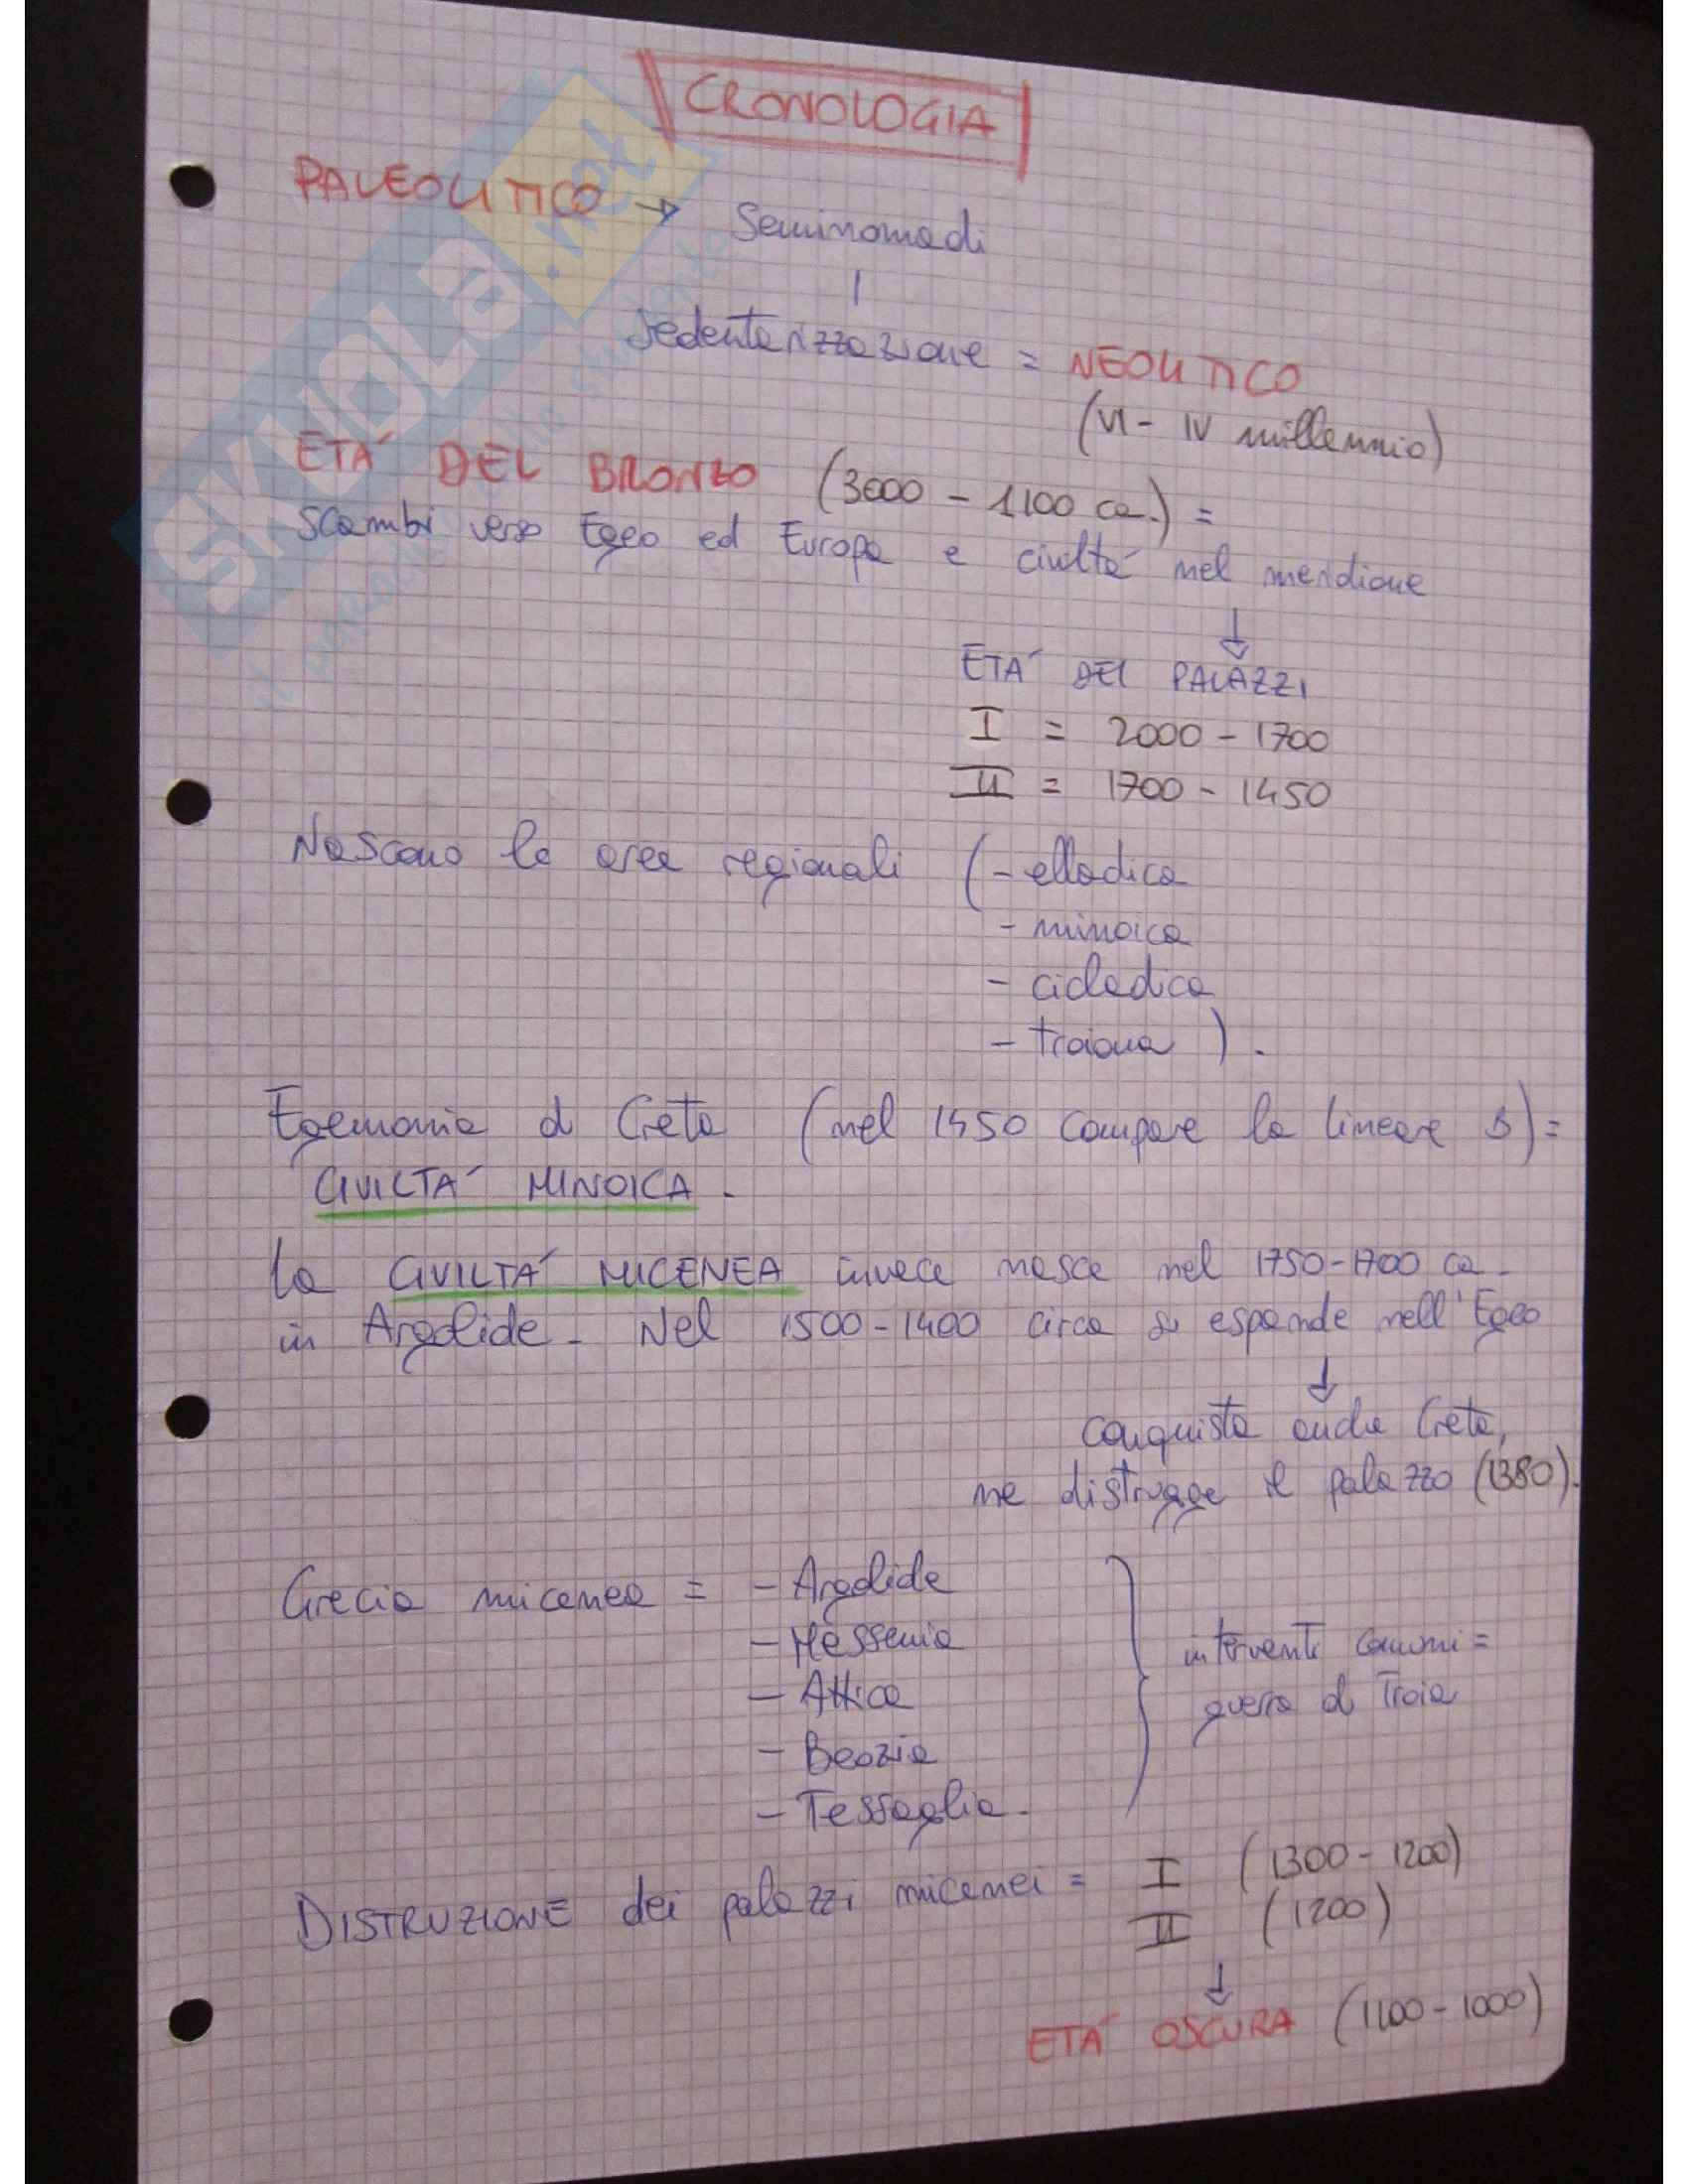 CRONOLOGIA
PALEOLITICO → Seminomadi
Sedentarizzazione = NEOLITICO
(VI - IV millennio)
ETÁ DEL BRONZO (3000 - 1100 ca.) =
scambi verso Egeo ed Europa e civiltá nel meridione
↓
ETÁ DEI PALAZZI
I = 2000 - 1700
II = 1700 - 1450
Nascono le aree regionali (- elladica
- minoica
- cicladica
- troiana ).
Egemonia di Creta (nel 1450 compare la lineare B) =
CIVILTÁ MINOICA.
La CIVILTÁ MICENEA invece nasce nel 1750-1700 ca.
in Argolide. Nel 1500-1400 circa si espande nell'Egeo
↓
conquista anche Creta,
ne distrugge il palazzo (1380).
Grecia micenea = - Argolide
- Messenia
- Attica
- Beozia
- Tessaglia.
interventi comuni =
guerra di Troia
DISTRUZIONE dei palazzi micenei = I (1300 - 1200)
II (1200)
↓
ETÁ OSCURA (1100 - 1000)
SKUOLA.net